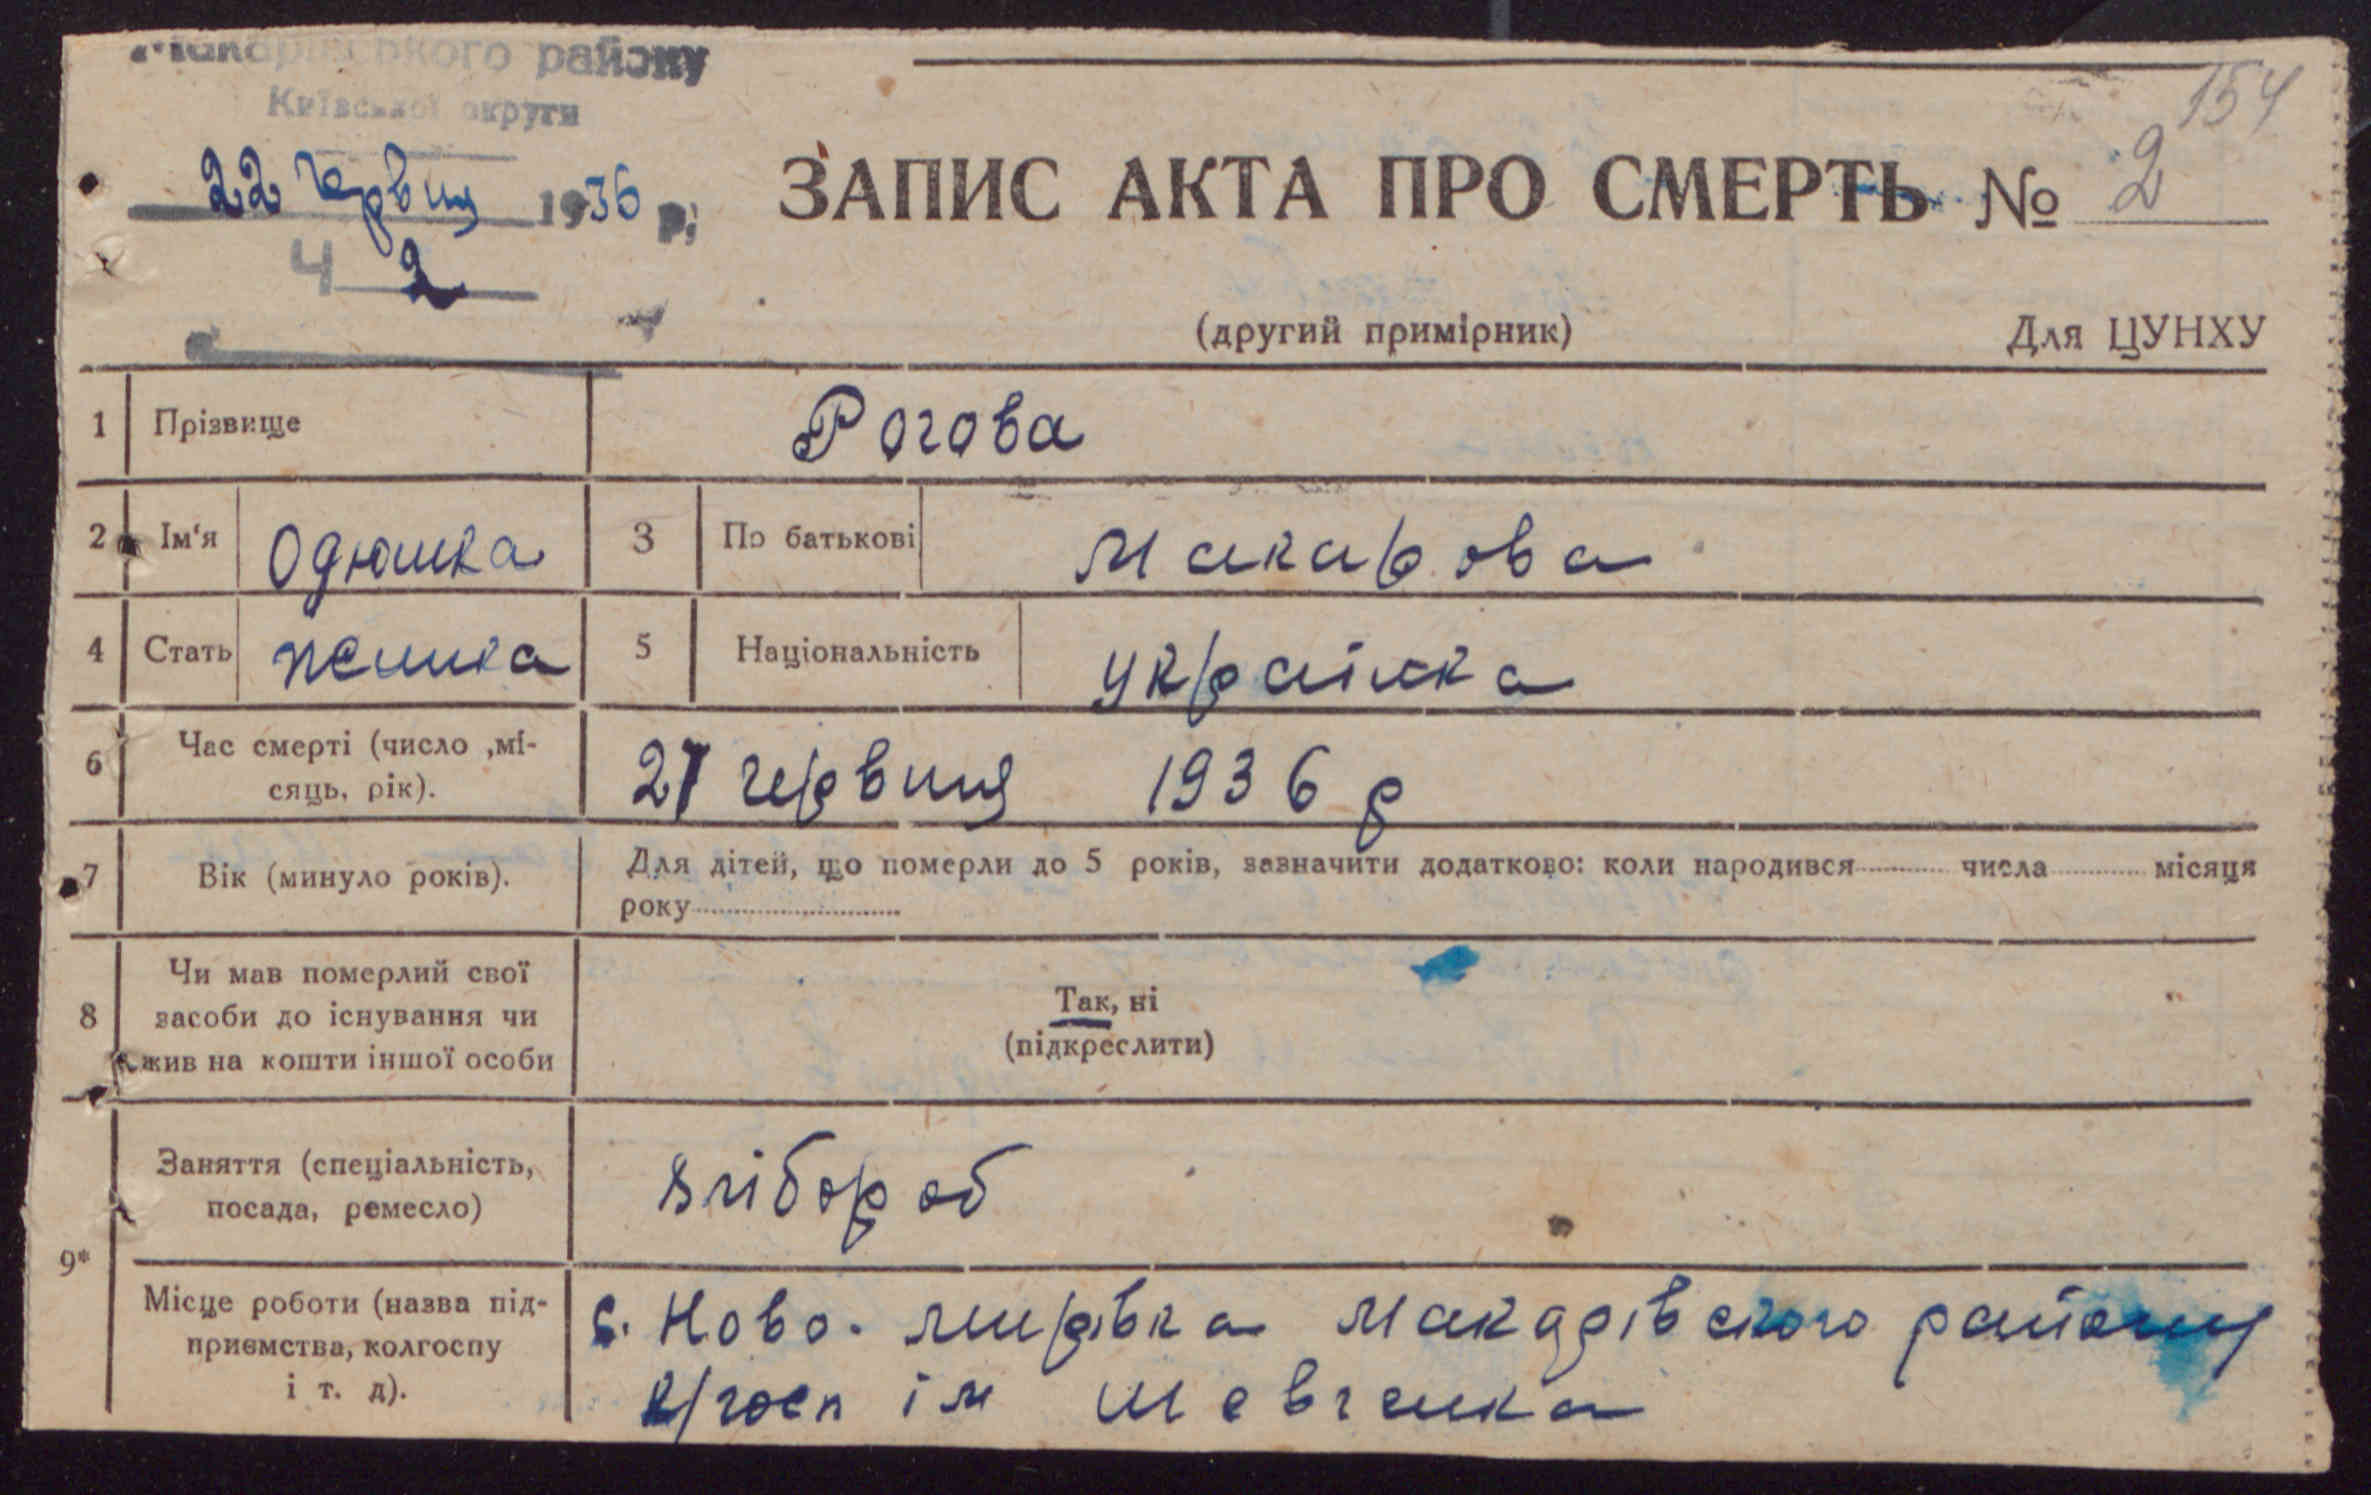 Макарівського району
Київської округи
154
22 червня 1936 р.
Ч 2
ЗАПИС АКТА ПРО СМЕРТЬ № 2
(другий примірник) Для ЦУНХУ
1 Прізвище Рогова
2 Ім'я Одюшка 3 По батькові Макарова
4 Стать женика 5 Національність українка
6 Час смерті (число ,мі-
сяць, рік).
21 червня 1936 р
7 Вік (минуло років). Для дітей, що померли до 5 років, зазначити додатково: коли народився числа місяця
року
8 Чи мав померлий свої
засоби до існування чи
жив на кошти іншої особи
Так, ні
(підкреслити)
9* Заняття (спеціальність,
посада, ремесло)
хлібороб
Місце роботи (назва під-
приємства, колгоспу
і т. д).
с. Ново-Мирівка Макарівского району
к/госп ім Шевченка